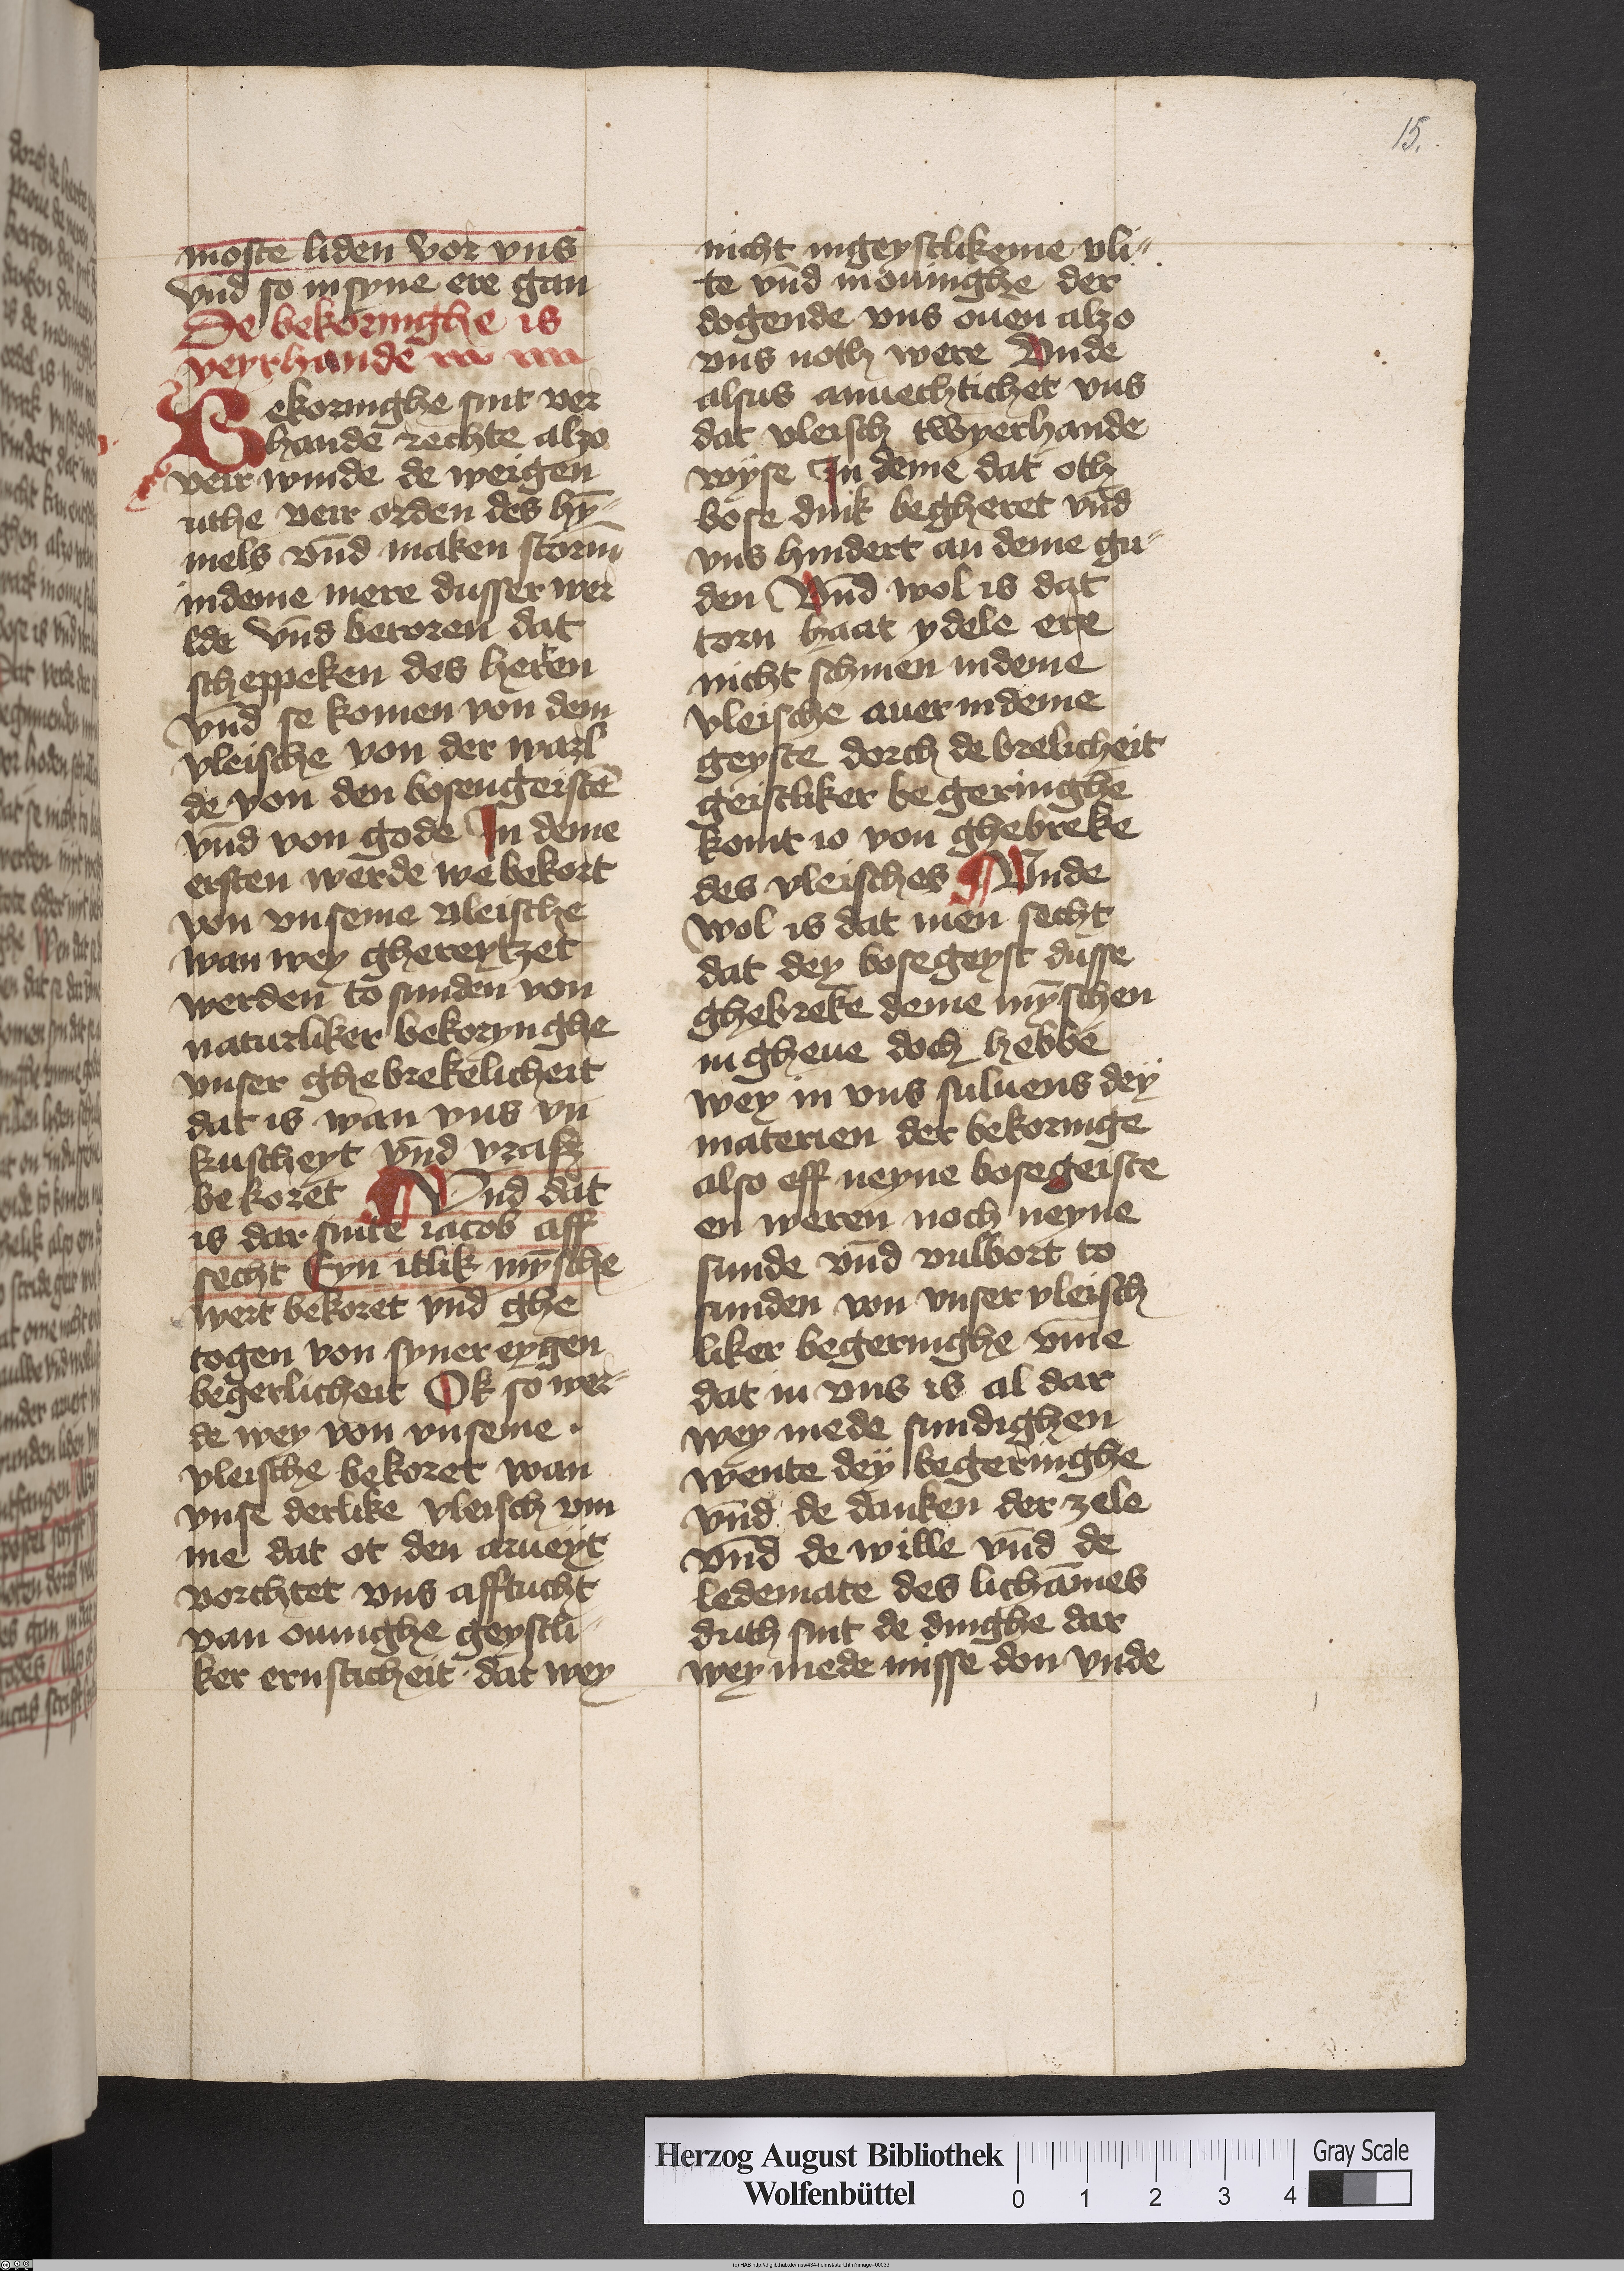 15.
moste liden vor vns
vnd so in syne ere gan
De bekoringhe is
veyrhande
Bekoringhe sint ver
hande rechte alzo
veir winde de weigen
uthe veir orden des hÿ-
mels vnd maken storm
in deme mere dusser wer
lde vnd beroren dat
scheppeken des heren
vnd se komen von dem
vleische von der warl
de von den bosen geistē
vnd von gode In deme
ersten werde we bekort
von vnseme vleische
wan wey ghereytzet
werden to sunden von
naturliker bekorynghe
vnser ghebrekelicheit
dat is wan vns vn
kuscheyt vnd vrasz
bekoret Vnd dat
is dar sinte iacob aff
secht Eyn itlik mȳsche
wert bekoret vnd ghe
togen von syner eygen
begerlicheit Ok so wer-
de wey von vnseme
vleische bekoret wan
vnse derlike vleisch vm
me dat ot den arueyt
vorchtet vns afftucht
van ouinghe geystli-
ker ernsticheit dat wey
nicht in geystlikeme vli-
te vnd in ouinghe der
dogende vns ouen alzo
vns noth were Vnde
alsus anuechtichet vns
dat vleisch twyerhande
wyse In deme dat oth
bose dink begheret vnd
vns hindert an deme gu-
den Vnd wol is dat
torn haat ydele ere
nicht schinen in deme
vleische auer in deme
geyste dorch de brelicheit
geistliker begeringhe
komt io von ghebreke
des vleisches Vnde
wol is dat men secht
dat dey bose geyst dusse
ghebreke deme mȳschen
in gheue doch hebbe
wey in vns suluens dey
materien der bekoringe
also eff neyne bose geiste
en weren noch neyne
sunde vnd vulbort to
sunden von vnser vleisch
liker begeringhe vm̄e
dat in vns is al dar
wey mede sundighen
wente dey begeringhe
vnd de danken der zele
vnd de wille vnd de
ledemate des lichāmes
duth sint de dinghe dar
wey mede misse don vnde
Herzog August Bibliothek
Wolfenbüttel
0 1 2 3 4
Gray Scale
(c) HAB http://diglib.hab.de/mss/434-helmst/start.htm?image=00033